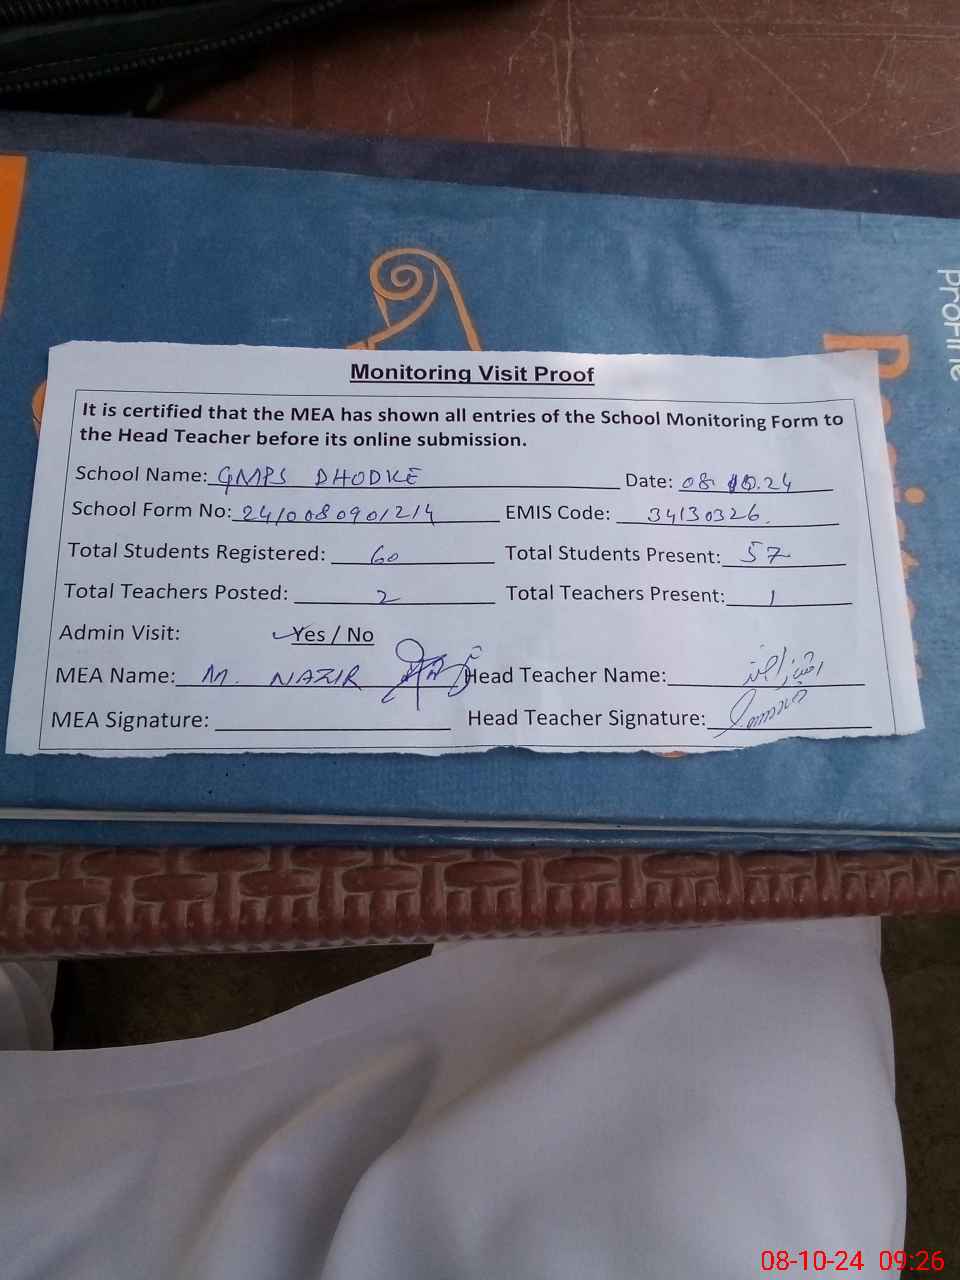 Monitoring Visit Proof
It is certified that the MEA has shown all entries of the School Monitoring Form to
the Head Teacher before its online submission.
School Name: GMPS DHODKE Date: 08.10.24
School Form No: 2410080901214 EMIS Code: 34130326.
Total Students Registered: 60 Total Students Present: 57
Total Teachers Posted: 2 Total Teachers Present: 1
Admin Visit: Yes / No
MEA Name: M. NAZIR Head Teacher Name:
MEA Signature: Head Teacher Signature:
ProFine
08-10-24 09:26